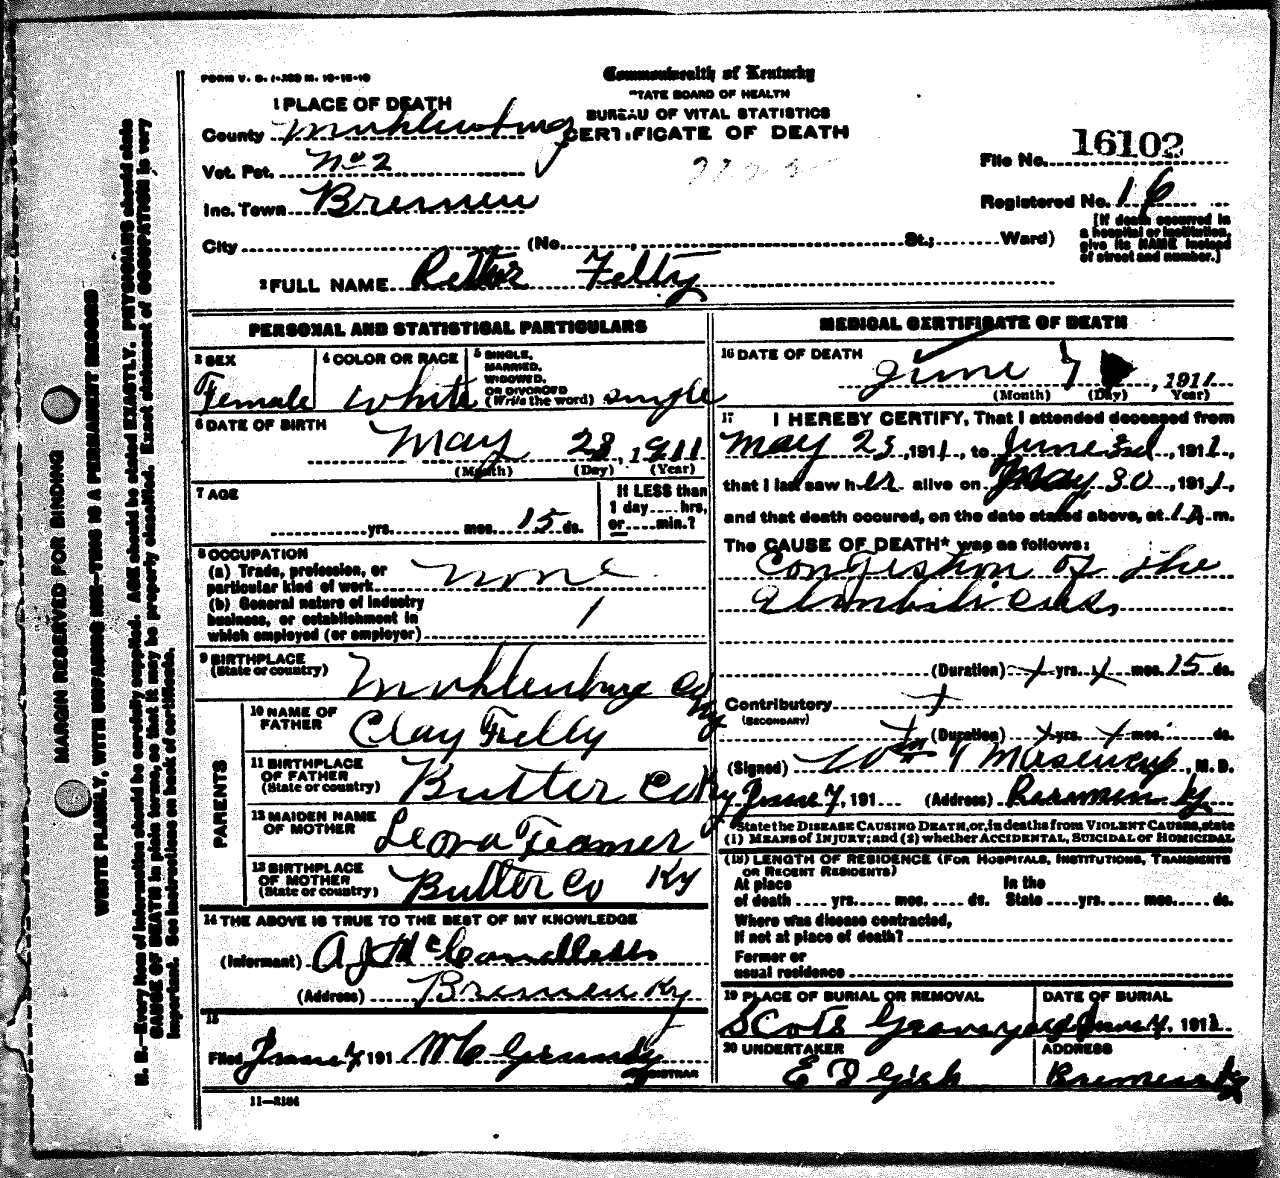 FORM V. S. 1-200 M. 10-15-10
Commonwealth of Kentucky
STATE BOARD OF HEALTH
BUREAU OF VITAL STATISTICS
CERTIFICATE OF DEATH
1 PLACE OF DEATH
County Muhlenburg
Vot. Pct. No 2
Inc. Town Bremen
City (No. , St.; Ward)
File No. 16102
Registered No. 16
[If death occurred in
a hospital or institution,
give its NAME instead
of street and number.]
2 FULL NAME Felty
PERSONAL AND STATISTICAL PARTICULARS
3 SEX
Female
4 COLOR OR RACE
White
5 SINGLE,
MARRIED,
WIDOWED,
OR DIVORCED
(Write the word) single
6 DATE OF BIRTH
May 23, 1911
(Month) (Day) (Year)
7 AGE
yrs. mos. 15 ds.
If LESS than
1 day hrs.
or min.?
8 OCCUPATION
(a) Trade, profession, or
particular kind of work none
(b) General nature of industry
business, or establishment in
which employed (or employer)
9 BIRTHPLACE
(State or country) Muhlenburg Co Ky
PARENTS
10 NAME OF
FATHER Clay Felty
11 BIRTHPLACE
OF FATHER
(State or country) Butler Co Ky
12 MAIDEN NAME
OF MOTHER Leora Teamer
13 BIRTHPLACE
OF MOTHER
(State or country) Butler Co Ky
14 THE ABOVE IS TRUE TO THE BEST OF MY KNOWLEDGE
(Informant) A J McCandless
(Address) Bremen Ky
15
Filed June 7 191 REGISTRAR
11-3184
MEDICAL CERTIFICATE OF DEATH
16 DATE OF DEATH
June 7, 1911
(Month) (Day) (Year)
17 I HEREBY CERTIFY, That I attended deceased from
May 23, 1911, to June 3d, 1911,
that I last saw her alive on May 30, 1911,
and that death occured, on the date stated above, at 1 A.m.
The CAUSE OF DEATH* was as follows:
Congestion of the
(Duration) yrs. mos. 15 ds.
Contributory
(SECONDARY)
(Duration) yrs. mos. ds.
(Signed) Wm , M. D.
June 7, 191 (Address) Bremen Ky
*State the DISEASE CAUSING DEATH, or, in deaths from VIOLENT CAUSES, state
(1) MEANS of INJURY; and (2) whether ACCIDENTAL, SUICIDAL or HOMICIDAL.
(18) LENGTH OF RESIDENCE (FOR HOSPITALS, INSTITUTIONS, TRANSIENTS
OR RECENT RESIDENTS)
At place In the
of death yrs. mos. ds. State yrs. mos. ds.
Where was disease contracted,
if not at place of death?
Former or
usual residence
19 PLACE OF BURIAL OR REMOVAL
Scots Graveyard
DATE OF BURIAL
June 7, 1911
20 UNDERTAKER
E D Gish
ADDRESS
Bremen Ky
MARGIN RESERVED FOR BINDING
WRITE PLAINLY, WITH UNFADING INK—THIS IS A PERMANENT RECORD
N. B.—Every item of information should be carefully supplied. AGE should be stated EXACTLY. PHYSICIANS should state
CAUSE OF DEATH in plain terms, so that it may be properly classified. Exact statement of OCCUPATION is very
important. See instructions on back of certificate.